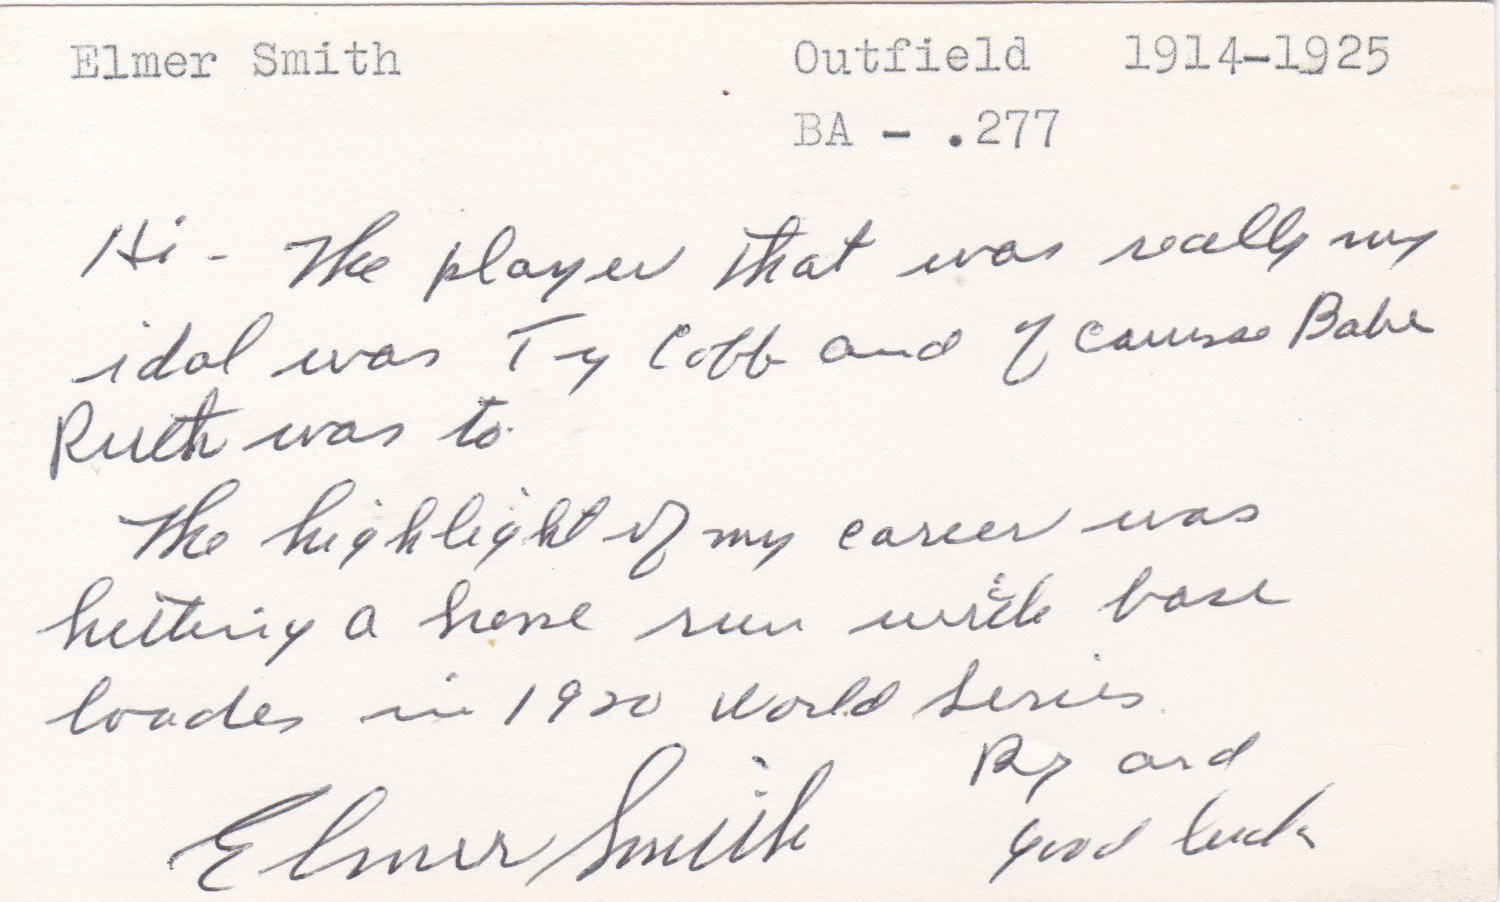 Elmer Smith Outfield 1914-1925
BA - .277
Hi - The player that was really my
idol was Ty Cobb and of course Babe
Ruth was to.
The highlight of my career was
hitting a home run with base
loades in 1920 World Series.
By and
good luck
Elmer Smith